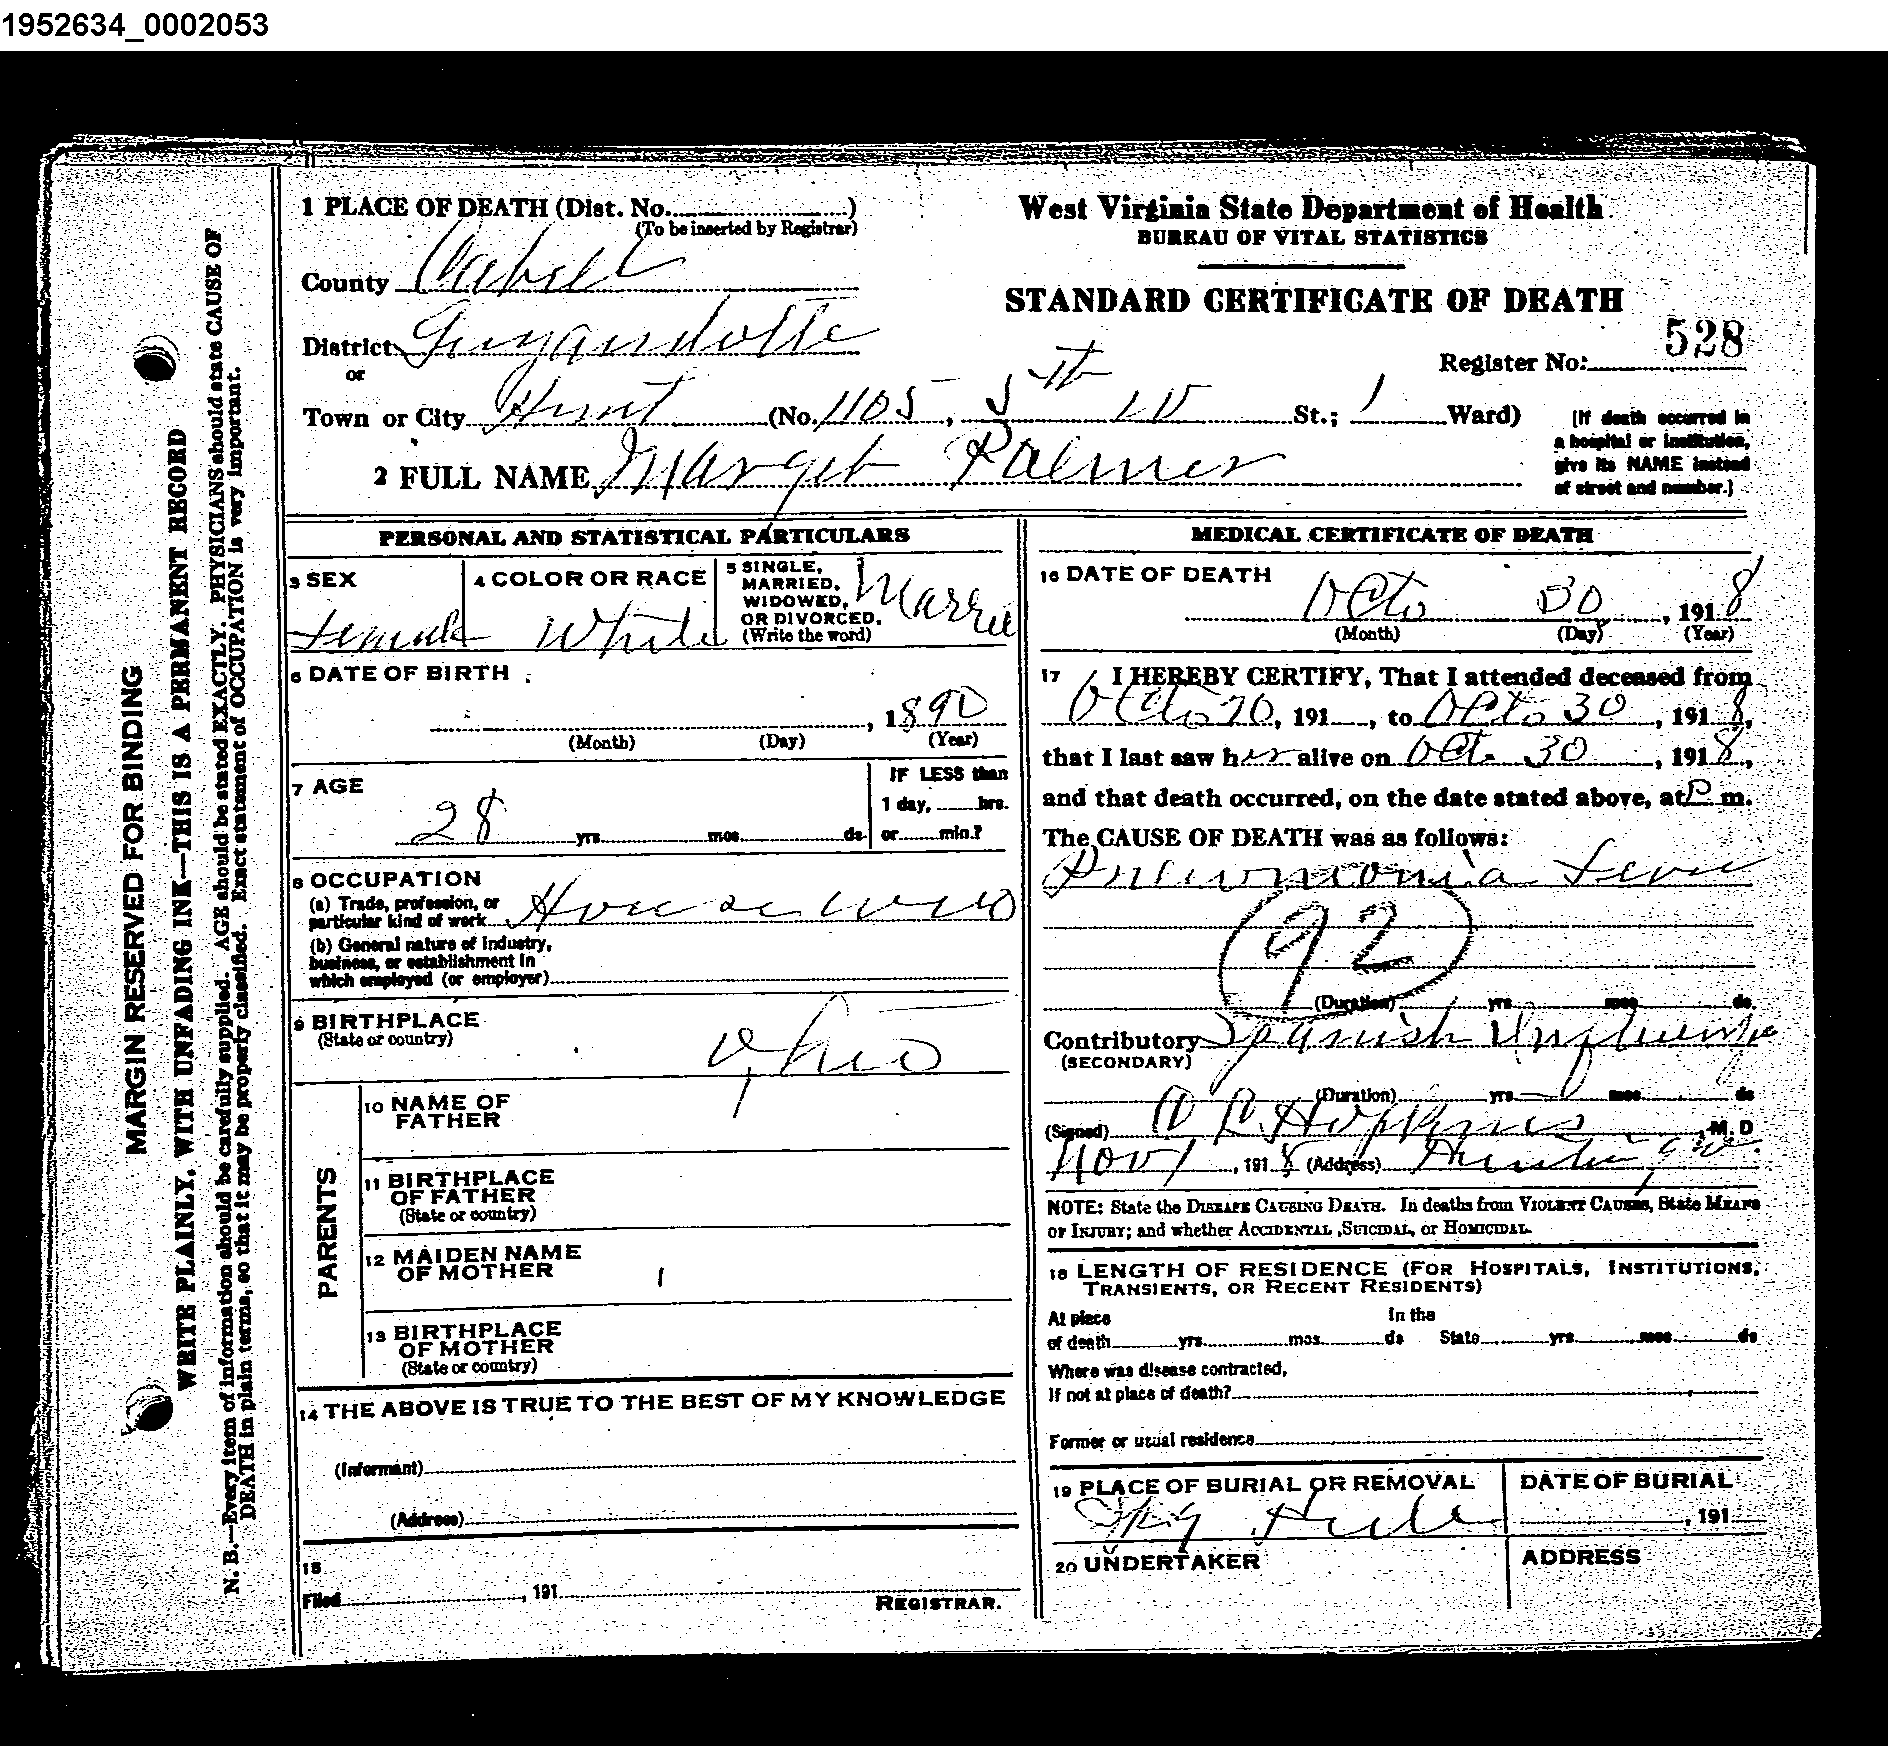 1952634_0002053
MARGIN RESERVED FOR BINDING
WRITE PLAINLY, WITH UNFADING INK—THIS IS A PERMANENT RECORD
N. B.—Every item of information should be carefully supplied. AGE should be stated EXACTLY. PHYSICIANS should state CAUSE OF
DEATH in plain terms, so that it may be properly classified. Exact statement of OCCUPATION is very important.
1 PLACE OF DEATH (Dist. No. )
(To be inserted by Registrar)
County Cabell
District Guyandotte
or
Town or City Hunt (No. 1105, 5th W St.; 1 Ward)
2 FULL NAME Marget Palmer
West Virginia State Department of Health
BUREAU OF VITAL STATISTICS
STANDARD CERTIFICATE OF DEATH
Register No: 528
(If death occurred in
a hospital or institution,
give its NAME instead
of street and number.)
PERSONAL AND STATISTICAL PARTICULARS
3 SEX
Female
4 COLOR OR RACE
White
5 SINGLE,
MARRIED,
WIDOWED,
OR DIVORCED.
(Write the word)
Married
6 DATE OF BIRTH
, 1890
(Month) (Day) (Year)
7 AGE
28 yrs. mos. ds.
IF LESS than
1 day, hrs.
or min.?
8 OCCUPATION
(a) Trade, profession, or
particular kind of work
(b) General nature of industry,
business, or establishment in
which employed (or employer)
9 BIRTHPLACE
(State or country)
Ohio
PARENTS
10 NAME OF
FATHER
11 BIRTHPLACE
OF FATHER
(State or country)
12 MAIDEN NAME
OF MOTHER
13 BIRTHPLACE
OF MOTHER
(State or country)
14 THE ABOVE IS TRUE TO THE BEST OF MY KNOWLEDGE
(Informant)
(Address)
15
Filed , 191
REGISTRAR.
MEDICAL CERTIFICATE OF DEATH
16 DATE OF DEATH
Octo 30, 1918
(Month) (Day) (Year)
17 I HEREBY CERTIFY, That I attended deceased from
Octo 20, 191 , to Octo 30, 1918,
that I last saw her alive on Oct. 30, 1918,
and that death occurred, on the date stated above, at P m.
The CAUSE OF DEATH was as follows:
Pneumonia
(92)
(Duration) yrs. mos. ds.
Contributory Spanish Influenza
(SECONDARY)
(Duration) yrs. mos. ds
(Signed) Hopkins, M. D
Nov 1, 1918 (Address)
NOTE: State the DISEASE CAUSING DEATH. In deaths from VIOLENT CAUSES, State MEANS
OF INJURY; and whether ACCIDENTAL, SUICIDAL, or HOMICIDAL.
18 LENGTH OF RESIDENCE (FOR HOSPITALS, INSTITUTIONS,
TRANSIENTS, OR RECENT RESIDENTS)
At place In the
of death yrs. mos. ds State yrs. mos. ds
Where was disease contracted,
If not at place of death?
Former or usual residence
19 PLACE OF BURIAL OR REMOVAL
DATE OF BURIAL
, 191
20 UNDERTAKER
ADDRESS